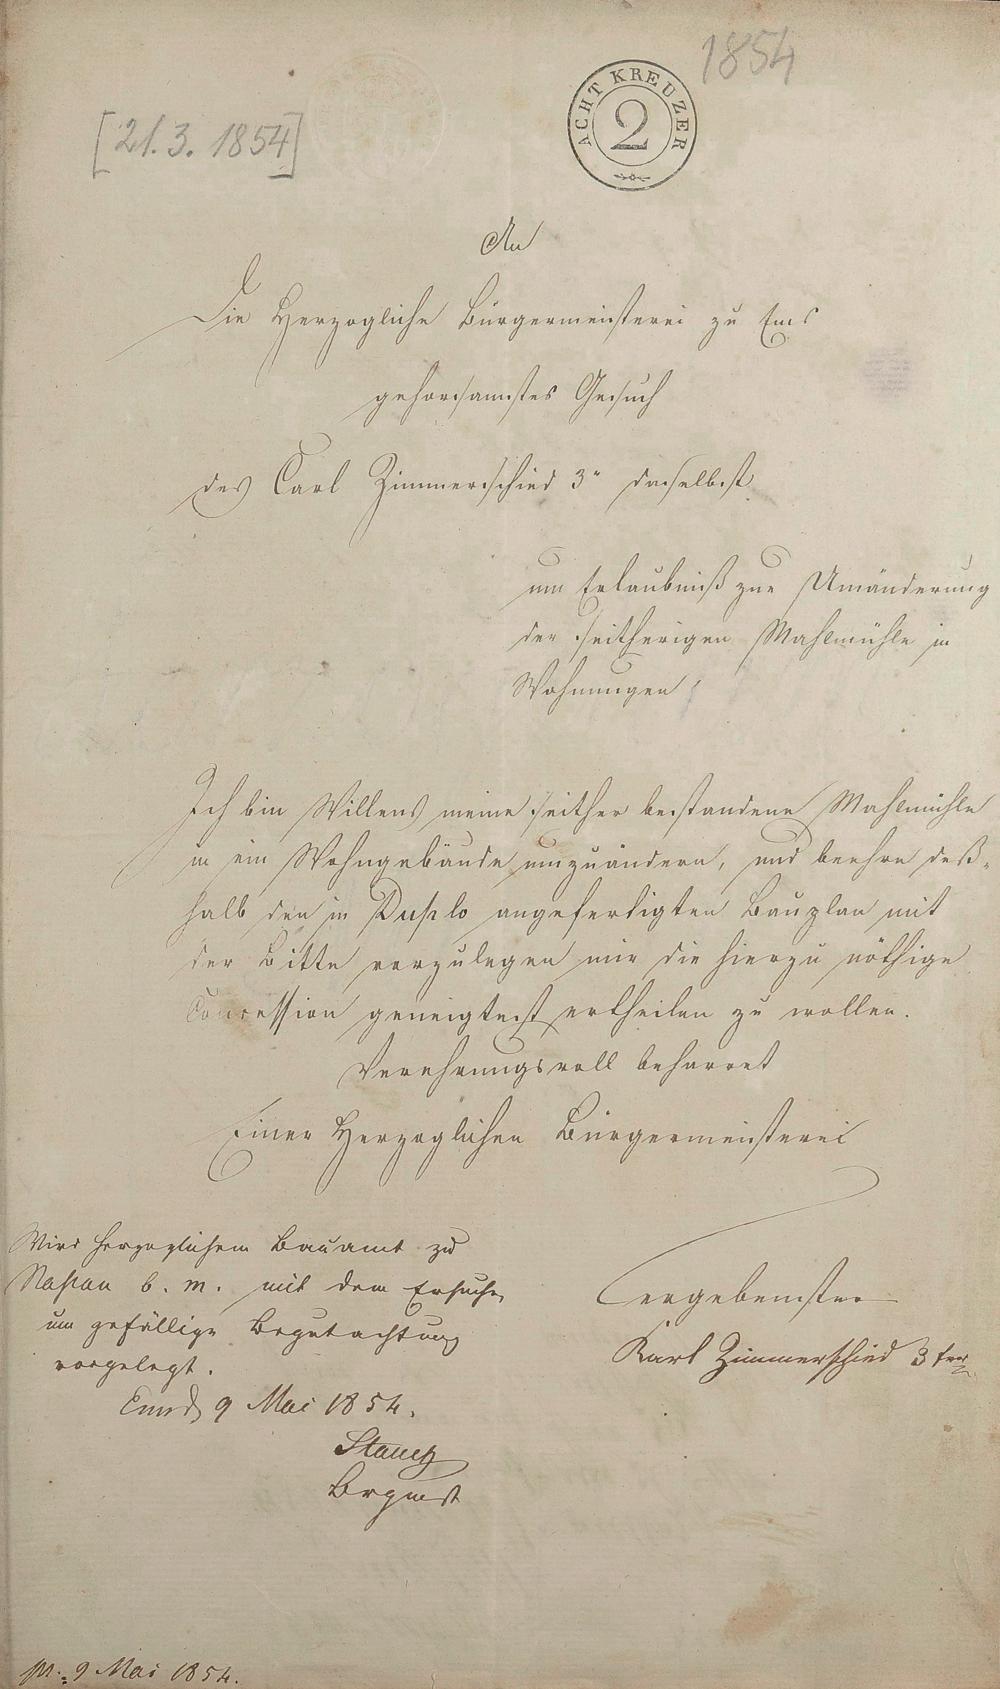 1854
ACHT KREUZER
2
[21.3.1854]
An
Die Herzogliche Bürgermeisterei zu Ems
gehorsamstes Gesuch
des Carl Zimmerschied 3r daselbst
um Erlaubniß zur Umänderung
der seitherigen Mahlmühle in
Wohnungen
Ich bin Willens meine seither bestandene Mahlmühle
in ein Wohngebäude umzuändern, und beehre deß-
halb den in Duplo angefertigten Bauplan mit
der Bitte vorzulegen mir die hierzu nöthige
Concession geneigtest ertheilen zu wollen.
Verehrungsvoll beharret
Einer Herzoglichen Bürgermeisterei
ergebenster
Karl Zimmerschied 3ter
Wird herzoglichem Bauamt zu
Naßau b. m. mit dem Ersuchen
um gefällige Begutachtung
vorgelegt.
9 Mai 1854.
pr. 9 Mai 1854.